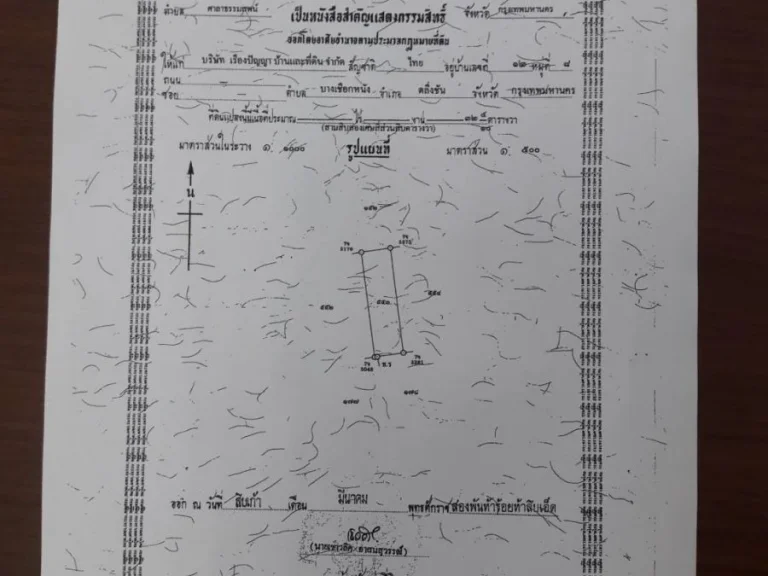 ตำบล ศาลาธรรมสพน์ เป็นหนังสือสำคัญแสดงกรรมสิทธิ์ จังหวัด กรุงเทพมหานคร
ออกโดยอาศัยอำนาจตามประมวลกฎหมายที่ดิน
ให้แก่ บริษัท เรืองปัญญา บ้านและที่ดิน จำกัด สัญชาติ ไทย อยู่บ้านเลขที่ ๑๒ หมู่ที่ ๘
ถนน —
ซอย — ตำบล บางเชือกหนัง อำเภอ ตลิ่งชัน จังหวัด กรุงเทพมหานคร
ที่ดินแปลงนี้มีเนื้อที่ประมาณ — ไร่ — งาน ๓๒ ๕/๑๐ ตารางวา
(สามสิบสองเศษห้าส่วนสิบตารางวา)
มาตราส่วนในระวาง ๑ ๑๐๐๐ รูปแผนที่ มาตราส่วน ๑ ๕๐๐
น
๕๕๒
๕๕๓
๕๕๔
๑๗๗
๑๗๘
ออก ณ วันที่ สิบเก้า เดือน มีนาคม พุทธศักราช สองพันห้าร้อยห้าสิบเอ็ด